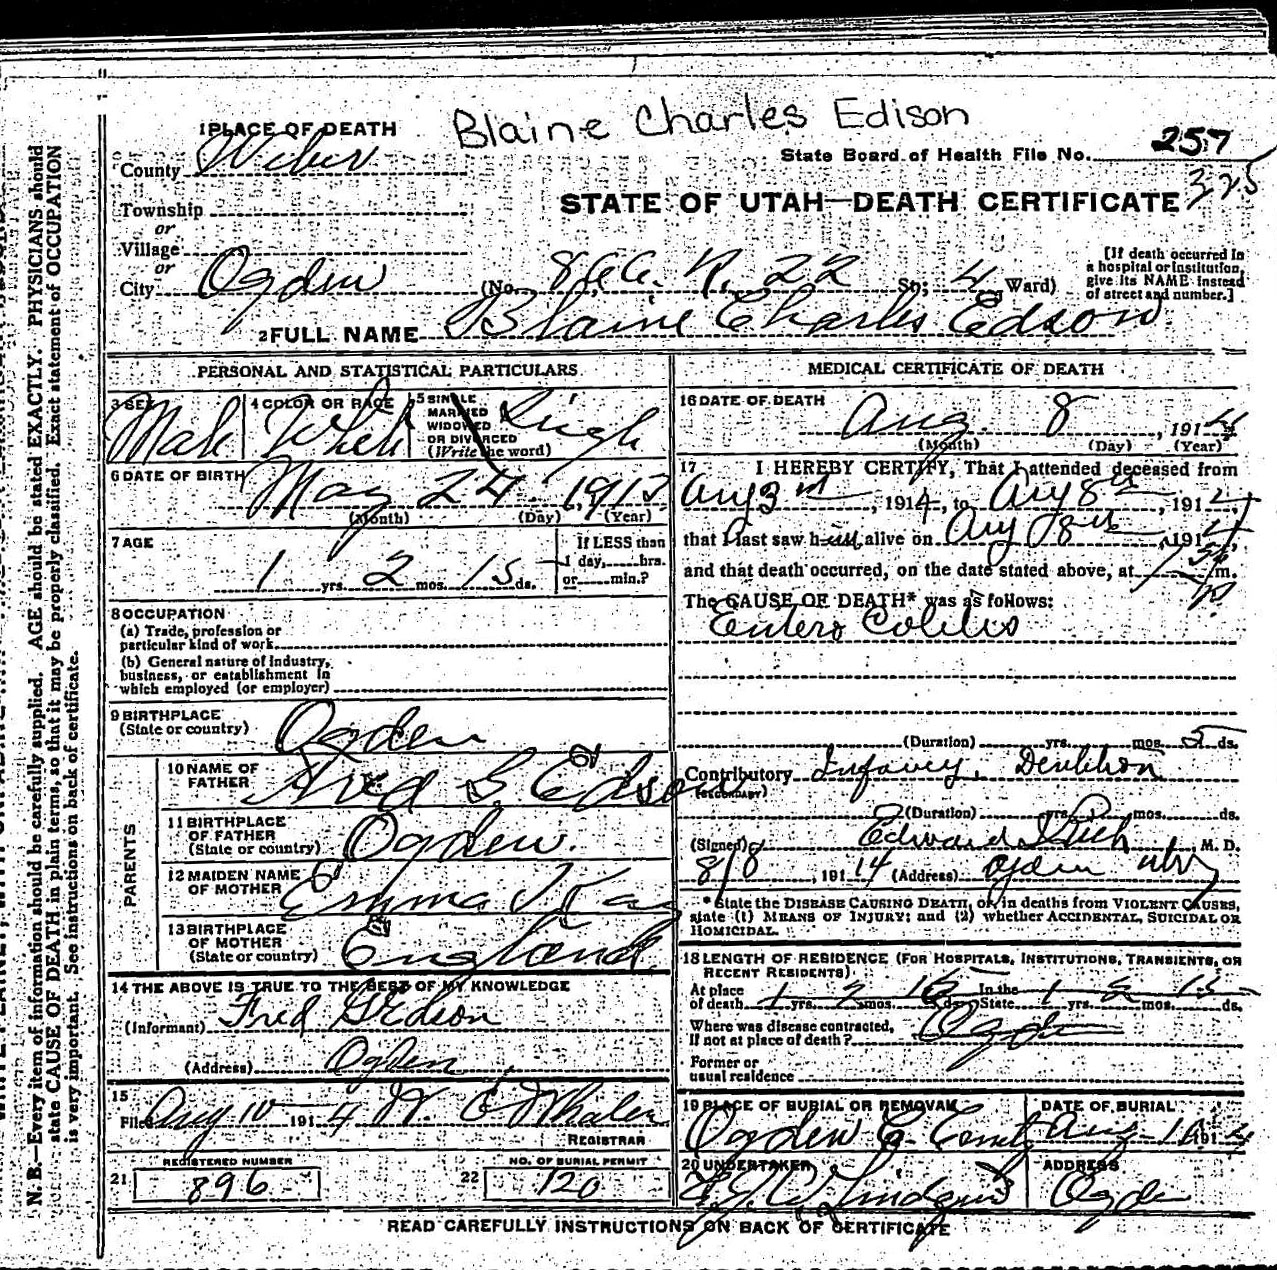 Blaine Charles Edison
1 PLACE OF DEATH
County Weber
State Board of Health File No. 257
325
Township
or
Village
or
City Ogden
STATE OF UTAH—DEATH CERTIFICATE
(No. 22 St; 4 Ward)
[If death occurred in a hospital or institution, give its NAME instead of street and number.]
2 FULL NAME Blaine Charles Edson
PERSONAL AND STATISTICAL PARTICULARS
3 SEX Male
4 COLOR OR RACE White
5 SINGLE
MARRIED
WIDOWED
OR DIVORCED
(Write the word)
Single
6 DATE OF BIRTH May 24 1913
(Month) (Day) (Year)
7 AGE
1 yrs. 2 mos. 15 ds.
If LESS than
1 day, hrs.
or min.?
8 OCCUPATION
(a) Trade, profession or
particular kind of work
(b) General nature of industry,
business, or establishment in
which employed (or employer)
9 BIRTHPLACE
(State or country) Ogden
PARENTS
10 NAME OF
FATHER Fred G. Edson
11 BIRTHPLACE
OF FATHER
(State or country) Ogden.
12 MAIDEN NAME
OF MOTHER Emma J Kay
13 BIRTHPLACE
OF MOTHER
(State or country) England.
14 THE ABOVE IS TRUE TO THE BEST OF MY KNOWLEDGE
(Informant) Fred G Edson
(Address) Ogden
15
Filed Aug 10 1914 W. E. Whalen
REGISTRAR
REGISTERED NUMBER
21 896
NO. OF BURIAL PERMIT
22 120
MEDICAL CERTIFICATE OF DEATH
16 DATE OF DEATH
Aug. 8, 1914
(Month) (Day) (Year)
17 I HEREBY CERTIFY, That I attended deceased from
Aug 3rd, 1914, to Aug 8th, 1914,
that I last saw him alive on Aug 8th, 1914,
and that death occurred, on the date stated above, at m.
The CAUSE OF DEATH* was as follows:
Entero Colitis
(Duration) yrs. mos. 5 ds.
Contributory Infancy, Dentition
(SECONDARY)
(Duration) yrs. mos. ds.
(Signed) Edward M. D.
8/8, 1914 (Address) Ogden Utah
* State the DISEASE CAUSING DEATH, or, in deaths from VIOLENT CAUSES,
state (1) MEANS OF INJURY; and (2) whether ACCIDENTAL, SUICIDAL OR
HOMICIDAL.
18 LENGTH OF RESIDENCE (FOR HOSPITALS, INSTITUTIONS, TRANSIENTS, OR
RECENT RESIDENTS)
At place
of death 1 yrs. 2 mos. 15 ds. In the State 1 yrs. 2 mos. 15 ds.
Where was disease contracted,
If not at place of death? Ogden
Former or
usual residence
19 PLACE OF BURIAL OR REMOVAL
DATE OF BURIAL
Ogden C. Cemety Aug 1914
20 UNDERTAKER
ADDRESS
Lindquist Ogden
READ CAREFULLY INSTRUCTIONS ON BACK OF CERTIFICATE
N. B.—Every item of information should be carefully supplied. AGE should be stated EXACTLY. PHYSICIANS should
state CAUSE OF DEATH in plain terms, so that it may be properly classified. Exact statement of OCCUPATION
is very important. See instructions on back of certificate.